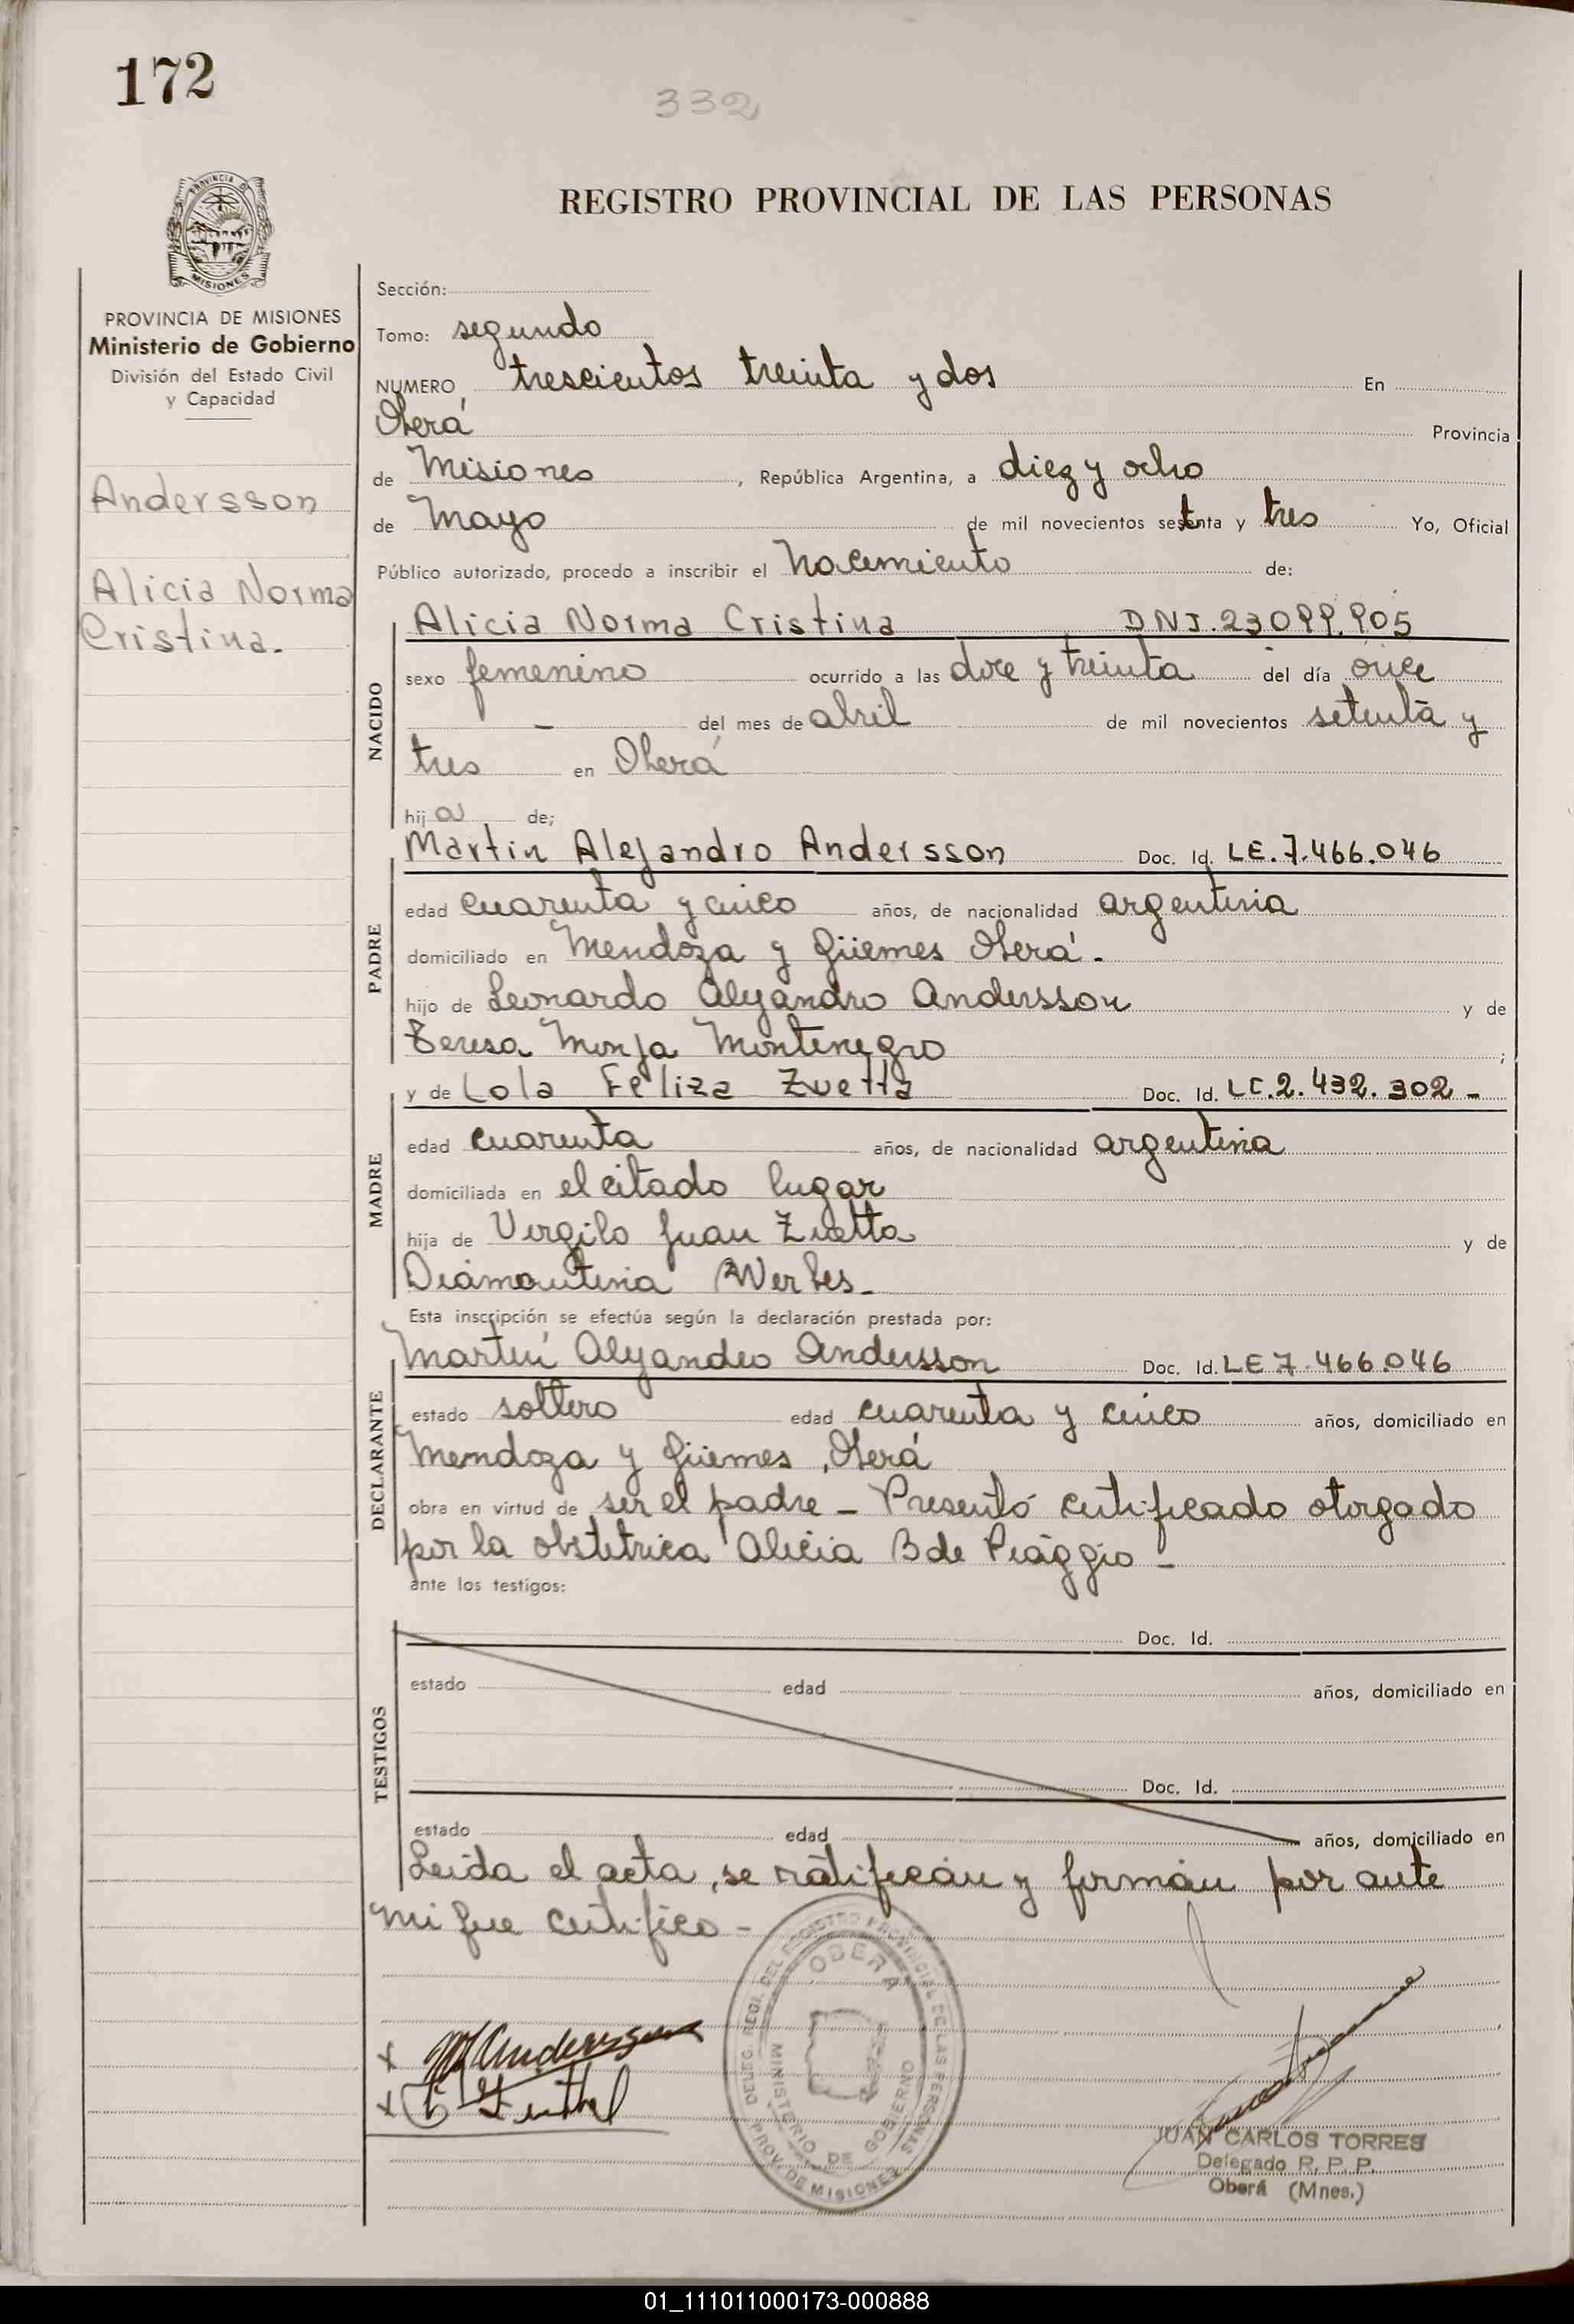 172
332
REGISTRO PROVINCIAL DE LAS PERSONAS
PROVINCIA DE MISIONES
MISIONES
PROVINCIA DE MISIONES
Ministerio de Gobierno
División del Estado Civil
y Capacidad
Andersson
Alicia Norma
Cristina.
Sección:
Tomo: segundo
NUMERO trescientos treinta y dos En
Oberá Provincia
de Misiones, República Argentina, a diez y ocho
de Mayo de mil novecientos setenta y tres Yo, Oficial
Público autorizado, procedo a inscribir el Nacimiento de:
NACIDO
Alicia Norma Cristina DNI.23099.905
sexo femenino ocurrido a las doce y treinta del día once
- del mes de abril de mil novecientos setenta y
tres en Oberá
hija de;
PADRE
Martin Alejandro Andersson Doc. Id. LE.7.466.046
edad cuarenta y cinco años, de nacionalidad argentina
domiciliado en Mendoza y Güemes Oberá.
hijo de Leonardo Alejandro Andersson y de
Teresa Monja Montenegro ;
y de Lola Feliza Zuetta Doc. Id. LC.2.432.302-
MADRE
edad cuarenta años, de nacionalidad argentina
domiciliada en el citado lugar
hija de Virgilo Juan Zuetta y de
Diamantina Werbes-
Esta inscripción se efectúa según la declaración prestada por:
DECLARANTE
Martín Alejandro Andersson Doc. Id. LE 7.466.046
estado soltero edad cuarenta y cinco años, domiciliado en
Mendoza y Güemes, Oberá
obra en virtud de ser el padre - Presentó certificado otorgado
por la obstetrica Alicia B de Piaggio -
ante los testigos:
TESTIGOS
Doc. Id.
estado edad años, domiciliado en
Doc. Id.
estado edad años, domiciliado en
Leida el acta, se ratifican y firman por ante
mi que certifico -
DELEG. REGL. DEL REGISTRO PROVINCIAL DE LAS PERSONAS
OBERA
MINISTERIO DE GOBIERNO
PROV. DE MISIONES
x M Andersson
x
JUAN CARLOS TORRES
Delegado R. P. P.
Oberá (Mnes.)
01_111011000173-000888